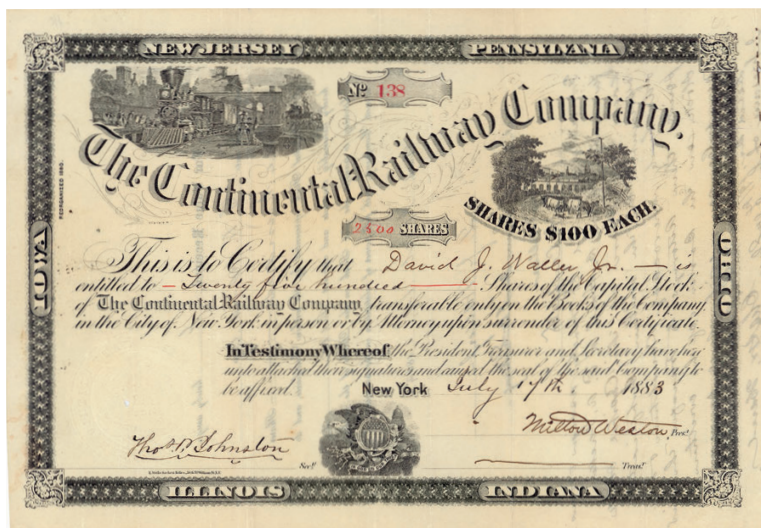 NEW JERSEY PENNSYLVANIA
Nº 138
The Continental Railway Company.
REORGANIZED 1880.
SHARES $100 EACH.
2500 SHARES
IOWA
OHIO
This is to Certify that David J. Waller Jr. — is
entitled to — Twenty five hundred — Shares of the Capital Stock
of The Continental Railway Company transferable only on the Books of the Company
in the City of New York in person or by Attorney upon surrender of this Certificate.
In Testimony Whereof the President, Treasurer and Secretary have here
unto attached their signatures and caused the seal of the said Company to
be affixed. New York July 17th 1883
Milton Weston, Prest.
Thos. B. Johnston Secy.
Treasr.
ILLINOIS INDIANA